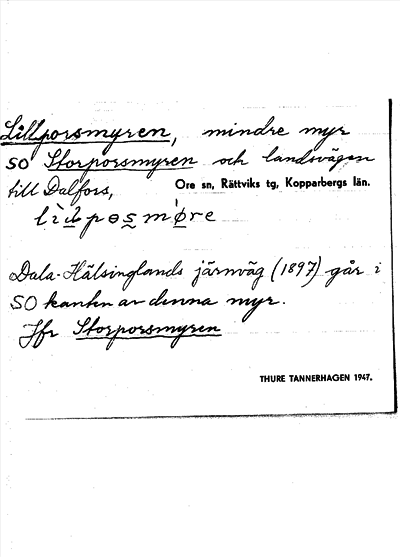 Lillporsmyren, mindre myr
SO Storporsmyren och landsvägen
till Dalfors,
Ore sn, Rättviks tg, Kopparbergs län.
Dala-Hälsinglands järnväg (1897) går i
SO kanten av denna myr.
Jfr Storporsmyren
THURE TANNERHAGEN 1947.